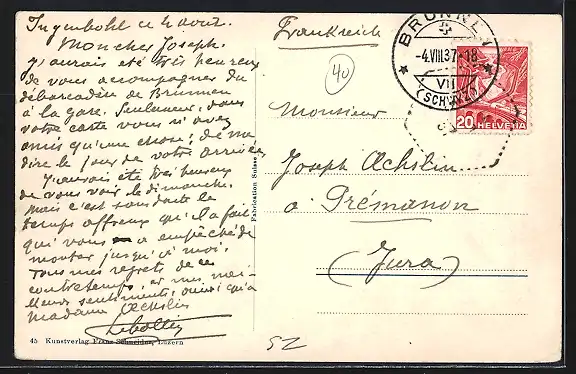 Ingenbohl ce 4 août.
Mon cher Joseph.
J'aurais été très heureux
de vous accompagner du
débarcadère de Brunnen
à la gare. Seulement, dans
votre carte vous n'avez
omis qu'une chose : de me
dire le jour de votre arrivée.
J'aurais été très heureux
de vous voir le dimanche.
Mais c'est sans doute le
temps affreux qu'il a fait
qui vous a empêché de
monter jusqu'à moi.
Tous mes regrets de ce
contretemps, et mes meil-
leurs sentiments, ainsi qu'à
Madame Œchslin
45 Kunstverlag Franz Schneider, Luzern
Fabrication Suisse
Frankreich
40
BRUNNEN
-4.VIII.37-18
VII
(SCHWYZ)
20 HELVETIA
Monsieur
Joseph Œchslin
à Prémanon
(Jura)
52